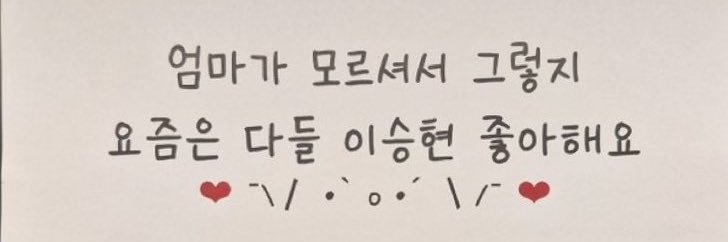 엄마가 모르셔서 그렇지
요즘은 다들 이승현 좋아해요
❤ ¯\/ •`o•´ \/¯ ❤